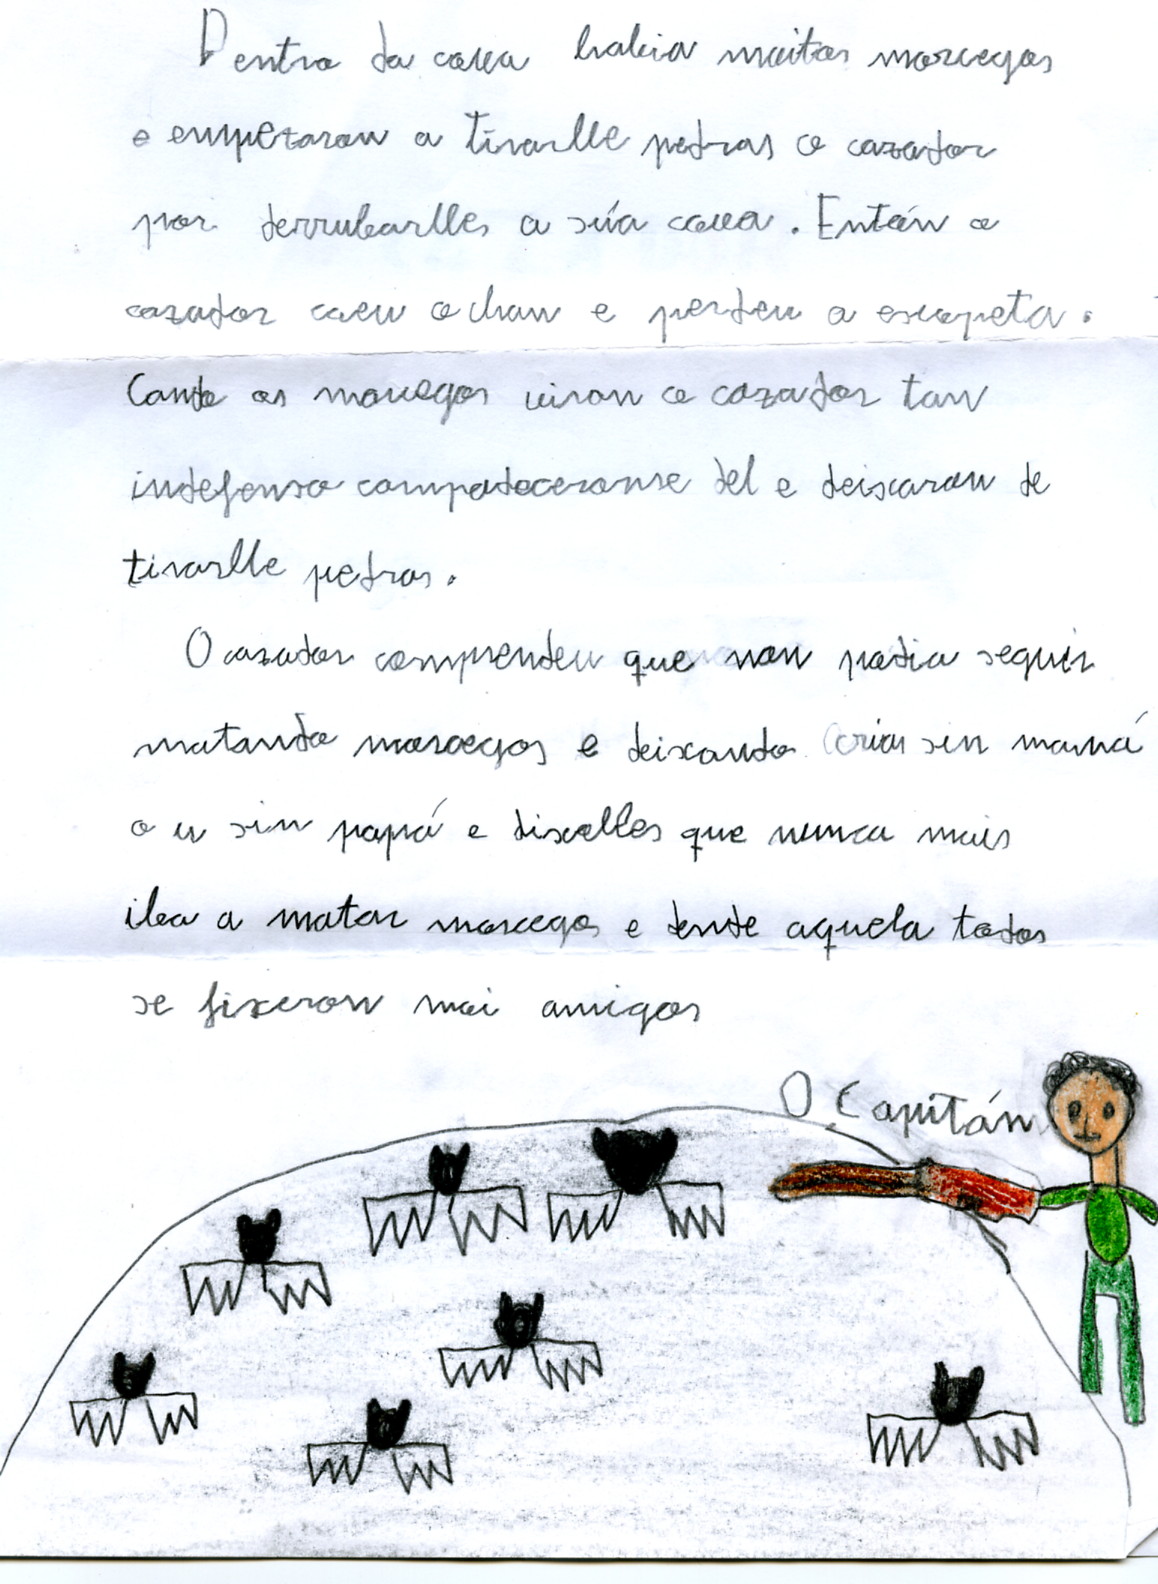 Dentro da cova habia moitos morcegos
e empezaron a tirarlle pedras o cazador
por derrubarlles a súa cova. Entón o
cazador caeu o chan e perdeu a escopeta.
Cando os morcegos viron o cazador tan
indefenso compadeceronse del e deixaron de
tirarlle pedras.
O cazador comprendeu que non podia seguir
matando morcegos e deixando crias sin mamá
o u sin papá e dixolles que nunca mais
iba a matar morcegos e dende aquela todos
se fixeron moi amigos
O Capitán